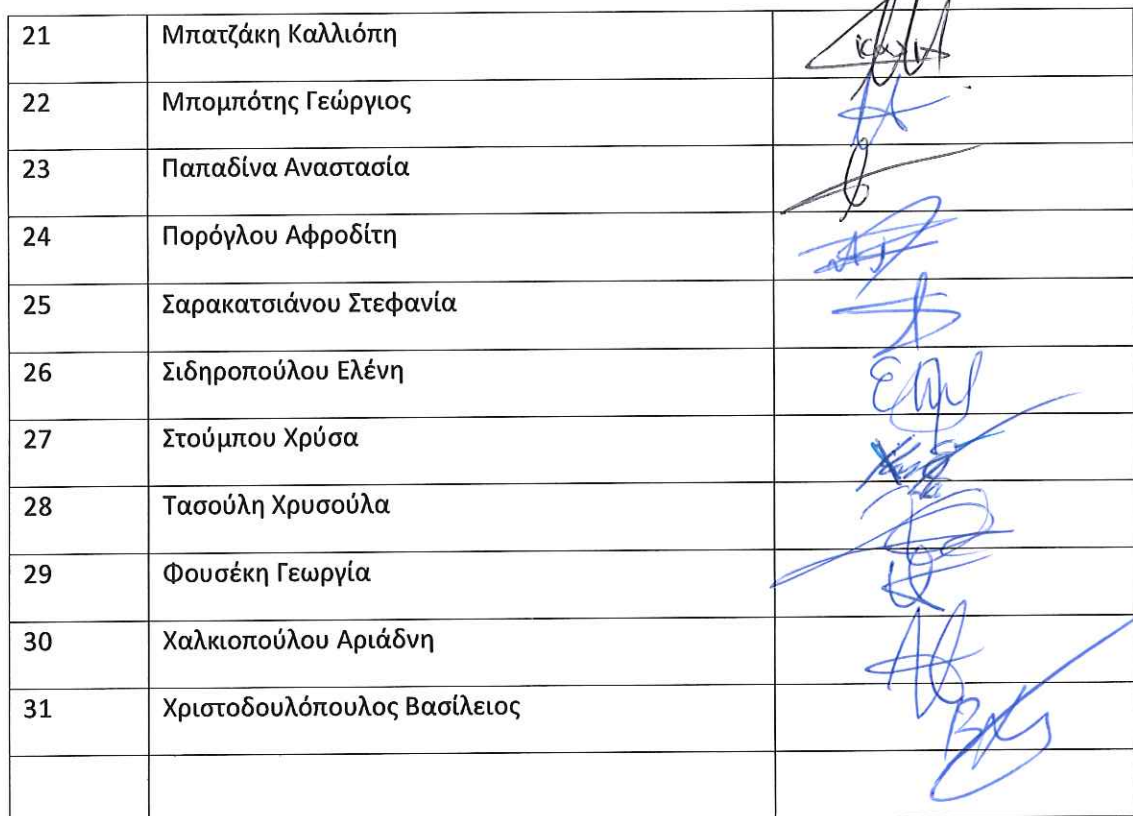 21 Μπατζάκη Καλλιόπη
22 Μπομπότης Γεώργιος
23 Παπαδίνα Αναστασία
24 Πορόγλου Αφροδίτη
25 Σαρακατσιάνου Στεφανία
26 Σιδηροπούλου Ελένη
27 Στούμπου Χρύσα
28 Τασούλη Χρυσούλα
29 Φουσέκη Γεωργία
30 Χαλκιοπούλου Αριάδνη
31 Χριστοδουλόπουλος Βασίλειος